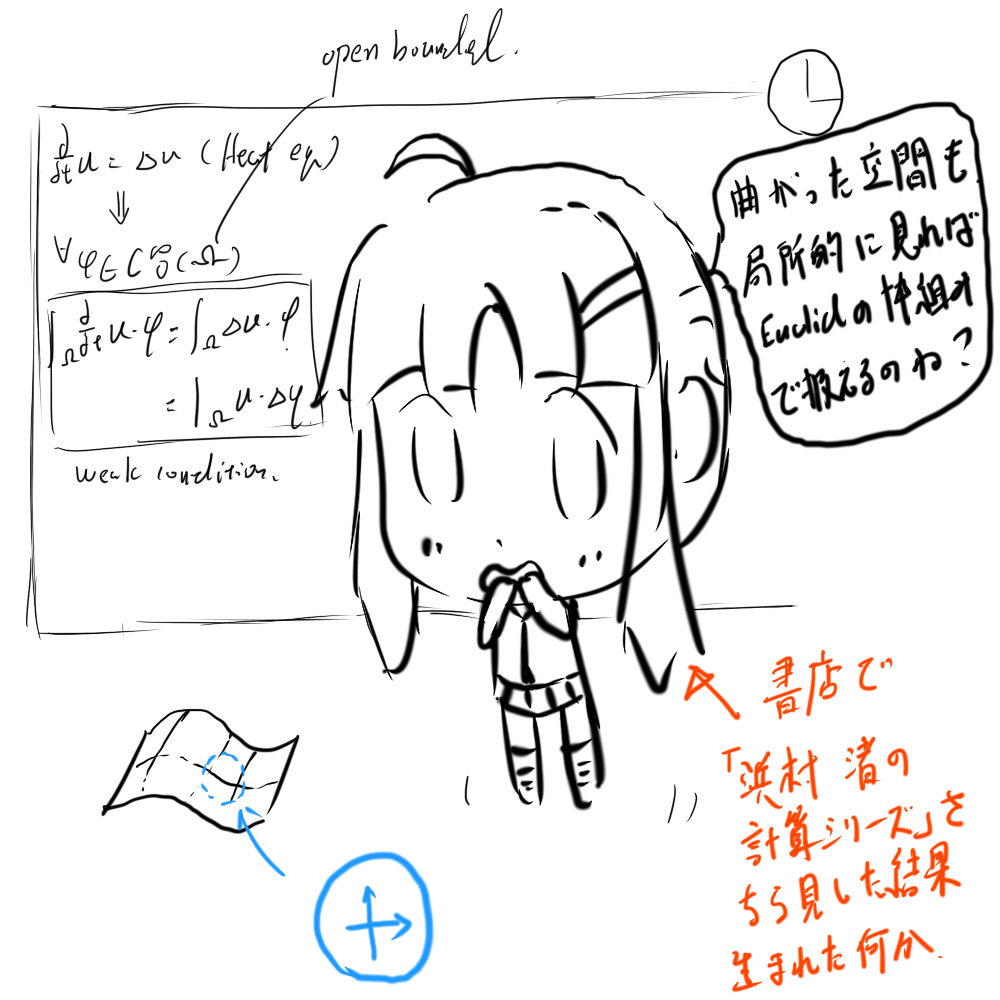 open bounded.
∂/∂t u = Δu (Heat eq)
⇓
∀φ∈C₀^∞(Ω)
∫_Ω ∂/∂t u・φ = ∫_Ω Δu・φ
= ∫_Ω u・Δφ
weak condition.
曲がった空間も
局所的に見れば
Euclidの枠組み
で扱えるのね?
書店で
「浜村 渚の
計算シリーズ」を
ちら見した結果
生まれた何か.